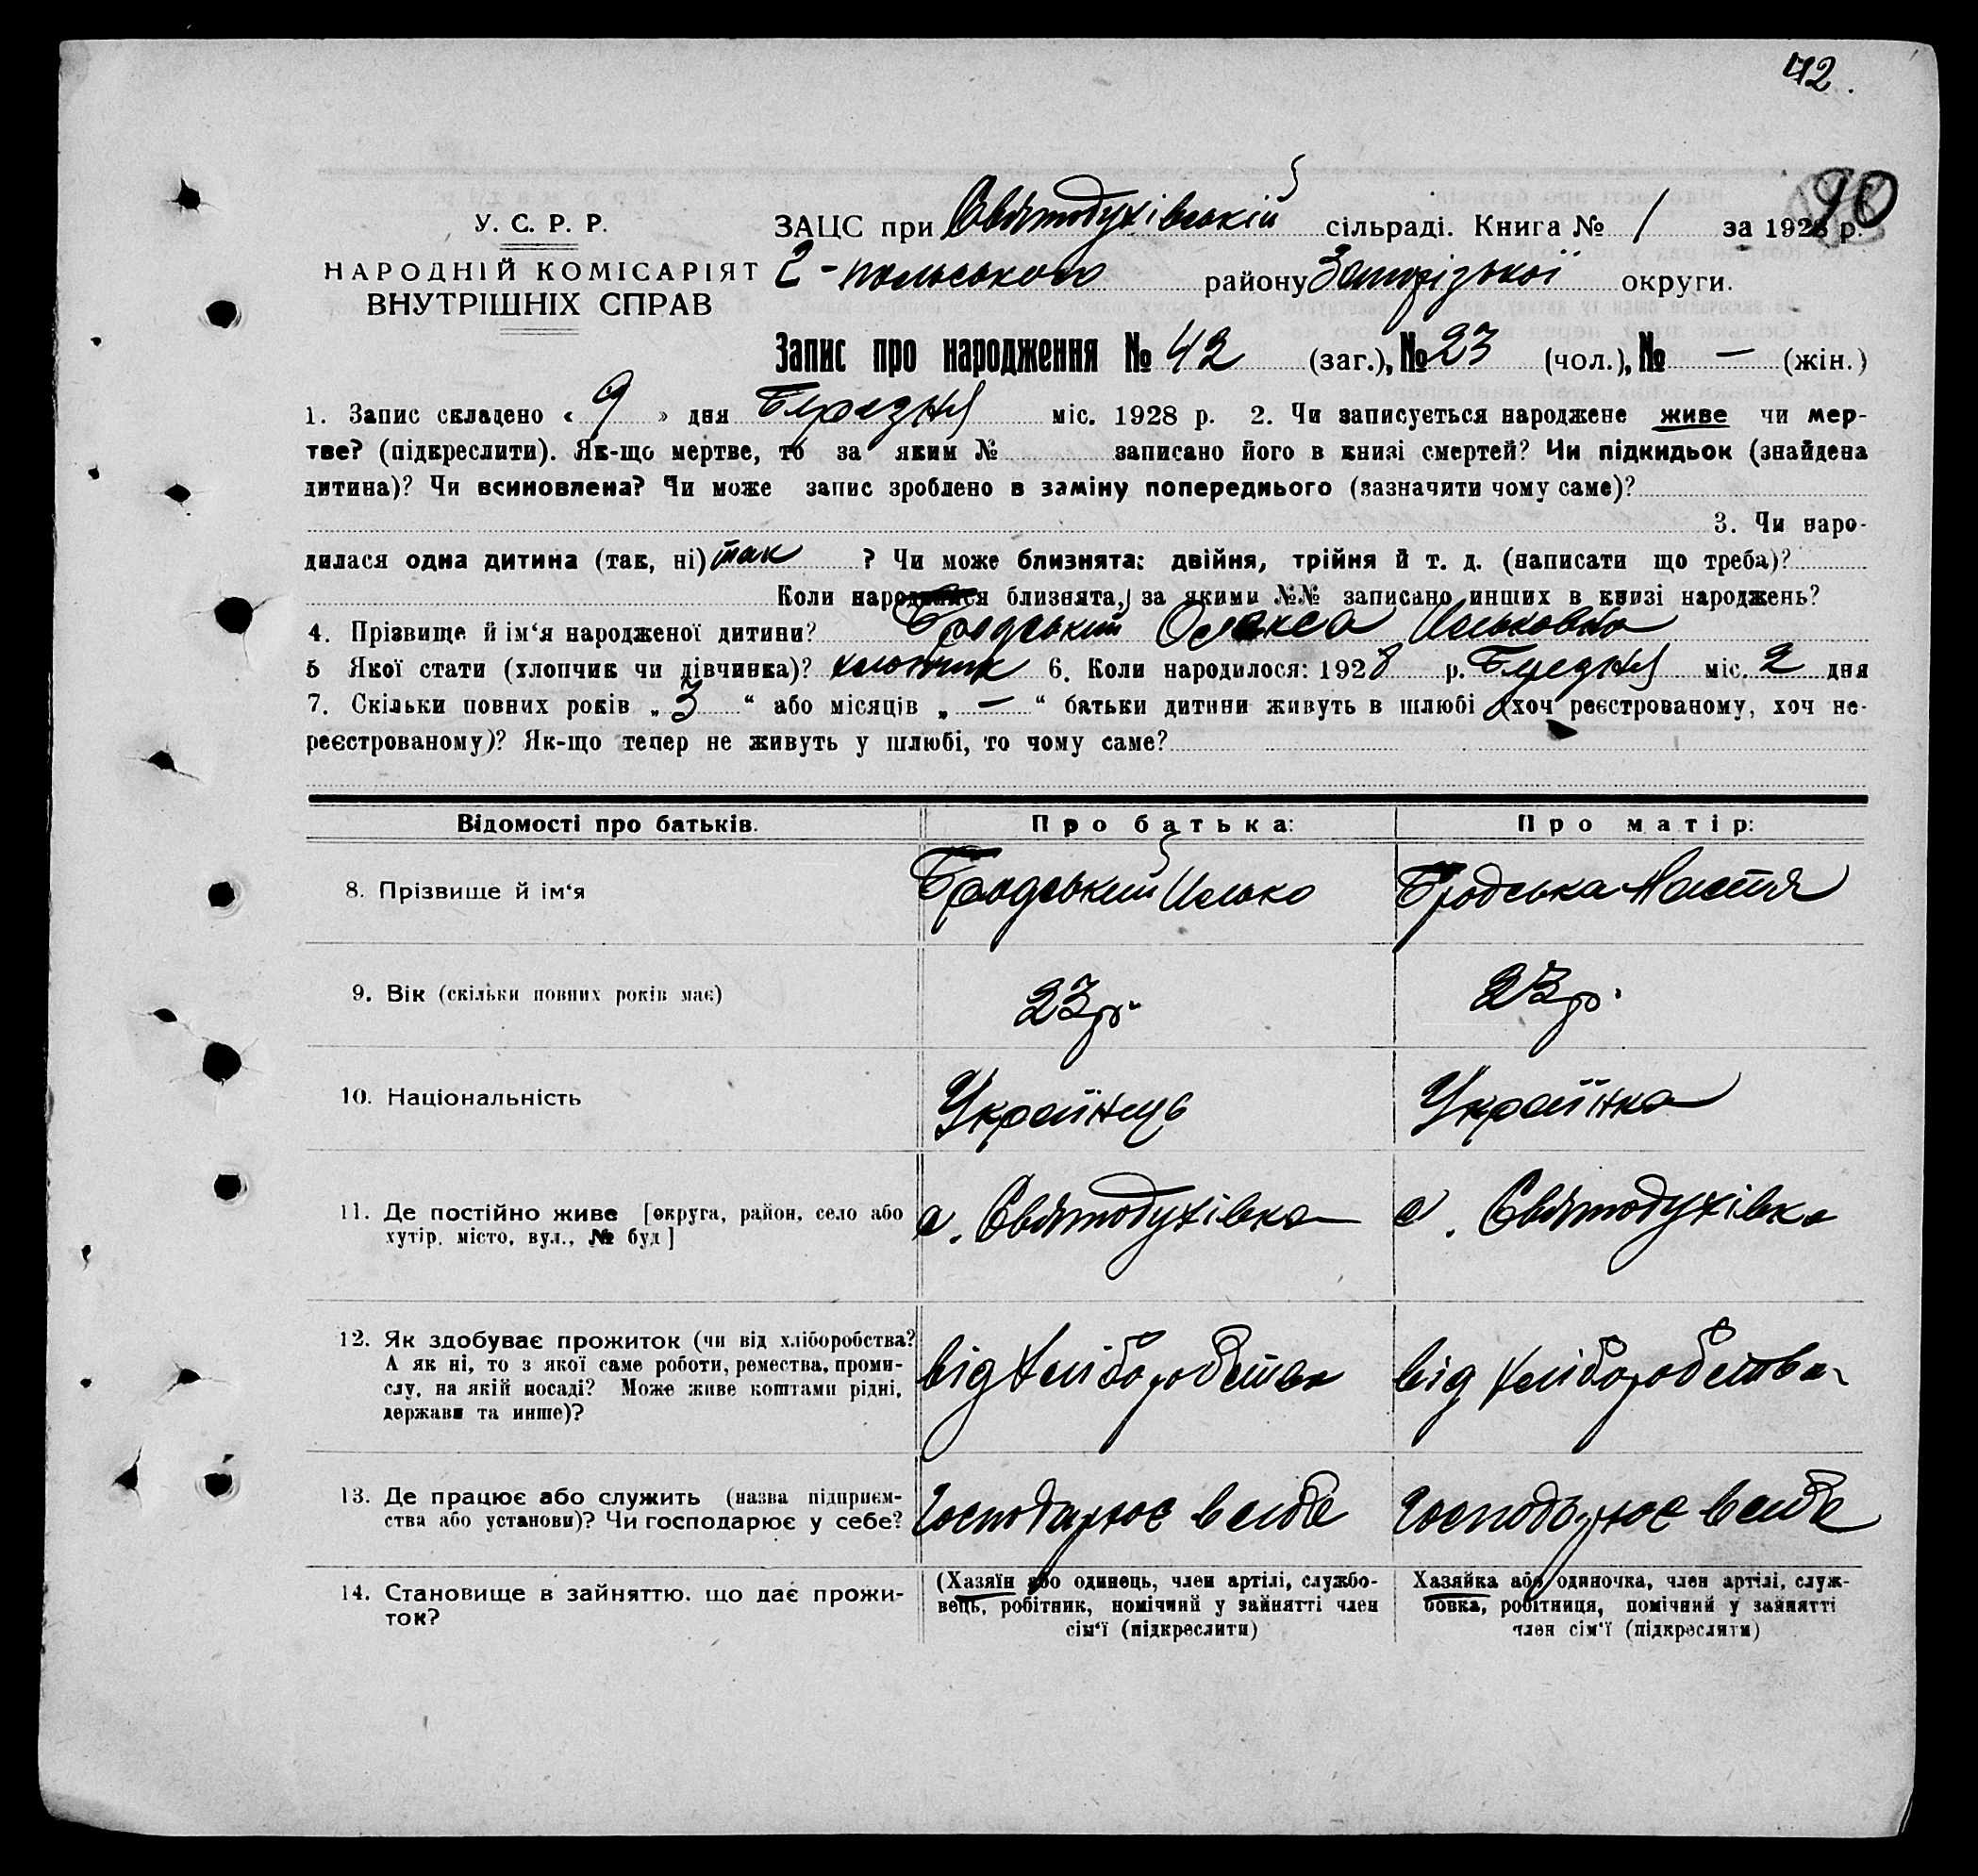 42.
90
У. С. Р. Р.
НАРОДНІЙ КОМІСАРІЯТ
ВНУТРІШНІХ СПРАВ
ЗАЦС при Святодухівській сільраді. Книга № 1 за 1928 р.
2-польського району Запорізької округи.
Запис про народження № 42 (заг.), № 23 (чол.), № — (жін.)
1. Запис складено « 9 » дня Березня міс. 1928 р. 2. Чи записується народжене живе чи мер-
тве? (підкреслити). Як-що мертве, то за яким № записано його в книзі смертей? Чи підкидьок (знайдена
дитина)? Чи всиновлена? Чи може запис зроблено в заміну попереднього (зазначити чому саме)?
3. Чи наро-
дилася одна дитина (так, ні) так ? Чи може близнята: двійня, трійня й т. д. (написати що треба)?
Коли народилися близнята, за якими №№ записано инших в книзі народжень?
4. Прізвище й ім‘я народженої дитини? Бродський Олекса
5 Якої стати (хлопчик чи дівчинка)? хлопчик 6. Коли народилося: 1928 р. Березня міс. 2 дня
7. Скільки повних років „ 3 “ або місяців „ — “ батьки дитини живуть в шлюбі (хоч реєстрованому, хоч не-
реєстрованому)? Як-що тепер не живуть у шлюбі, то чому саме?
Відомості про батьків. Про батька: Про матір:
8. Прізвище й ім‘я Бродський Илько Бродська Настя
9. Вік (скільки повних років має) 23 р. 23 р.
10. Національність Українець Українка
11. Де постійно живе [округа, район, село або
хутір, місто, вул., № буд] с. Святодухівка с. Святодухівка
12. Як здобуває прожиток (чи від хліборобства?
А як ні, то з якої саме роботи, ремества, проми-
слу, на якій посаді? Може живе коштами рідні,
держави та инше)? від хліборобства від хліборобства
13. Де працює або служить (назва підприєм-
ства або установи)? Чи господарює у себе? Господарює в себе Господарює в себе
14. Становище в зайняттю, що дає прожи-
ток?
(Хазяїн або одинець, член артілі, службо-
вець, робітник, помічний у зайнятті член
сім‘ї (підкреслити)
Хазяйка або одиночка, член артілі, служ-
бовка, робітниця, помічний у зайнятті
член сім‘ї (підкреслити)